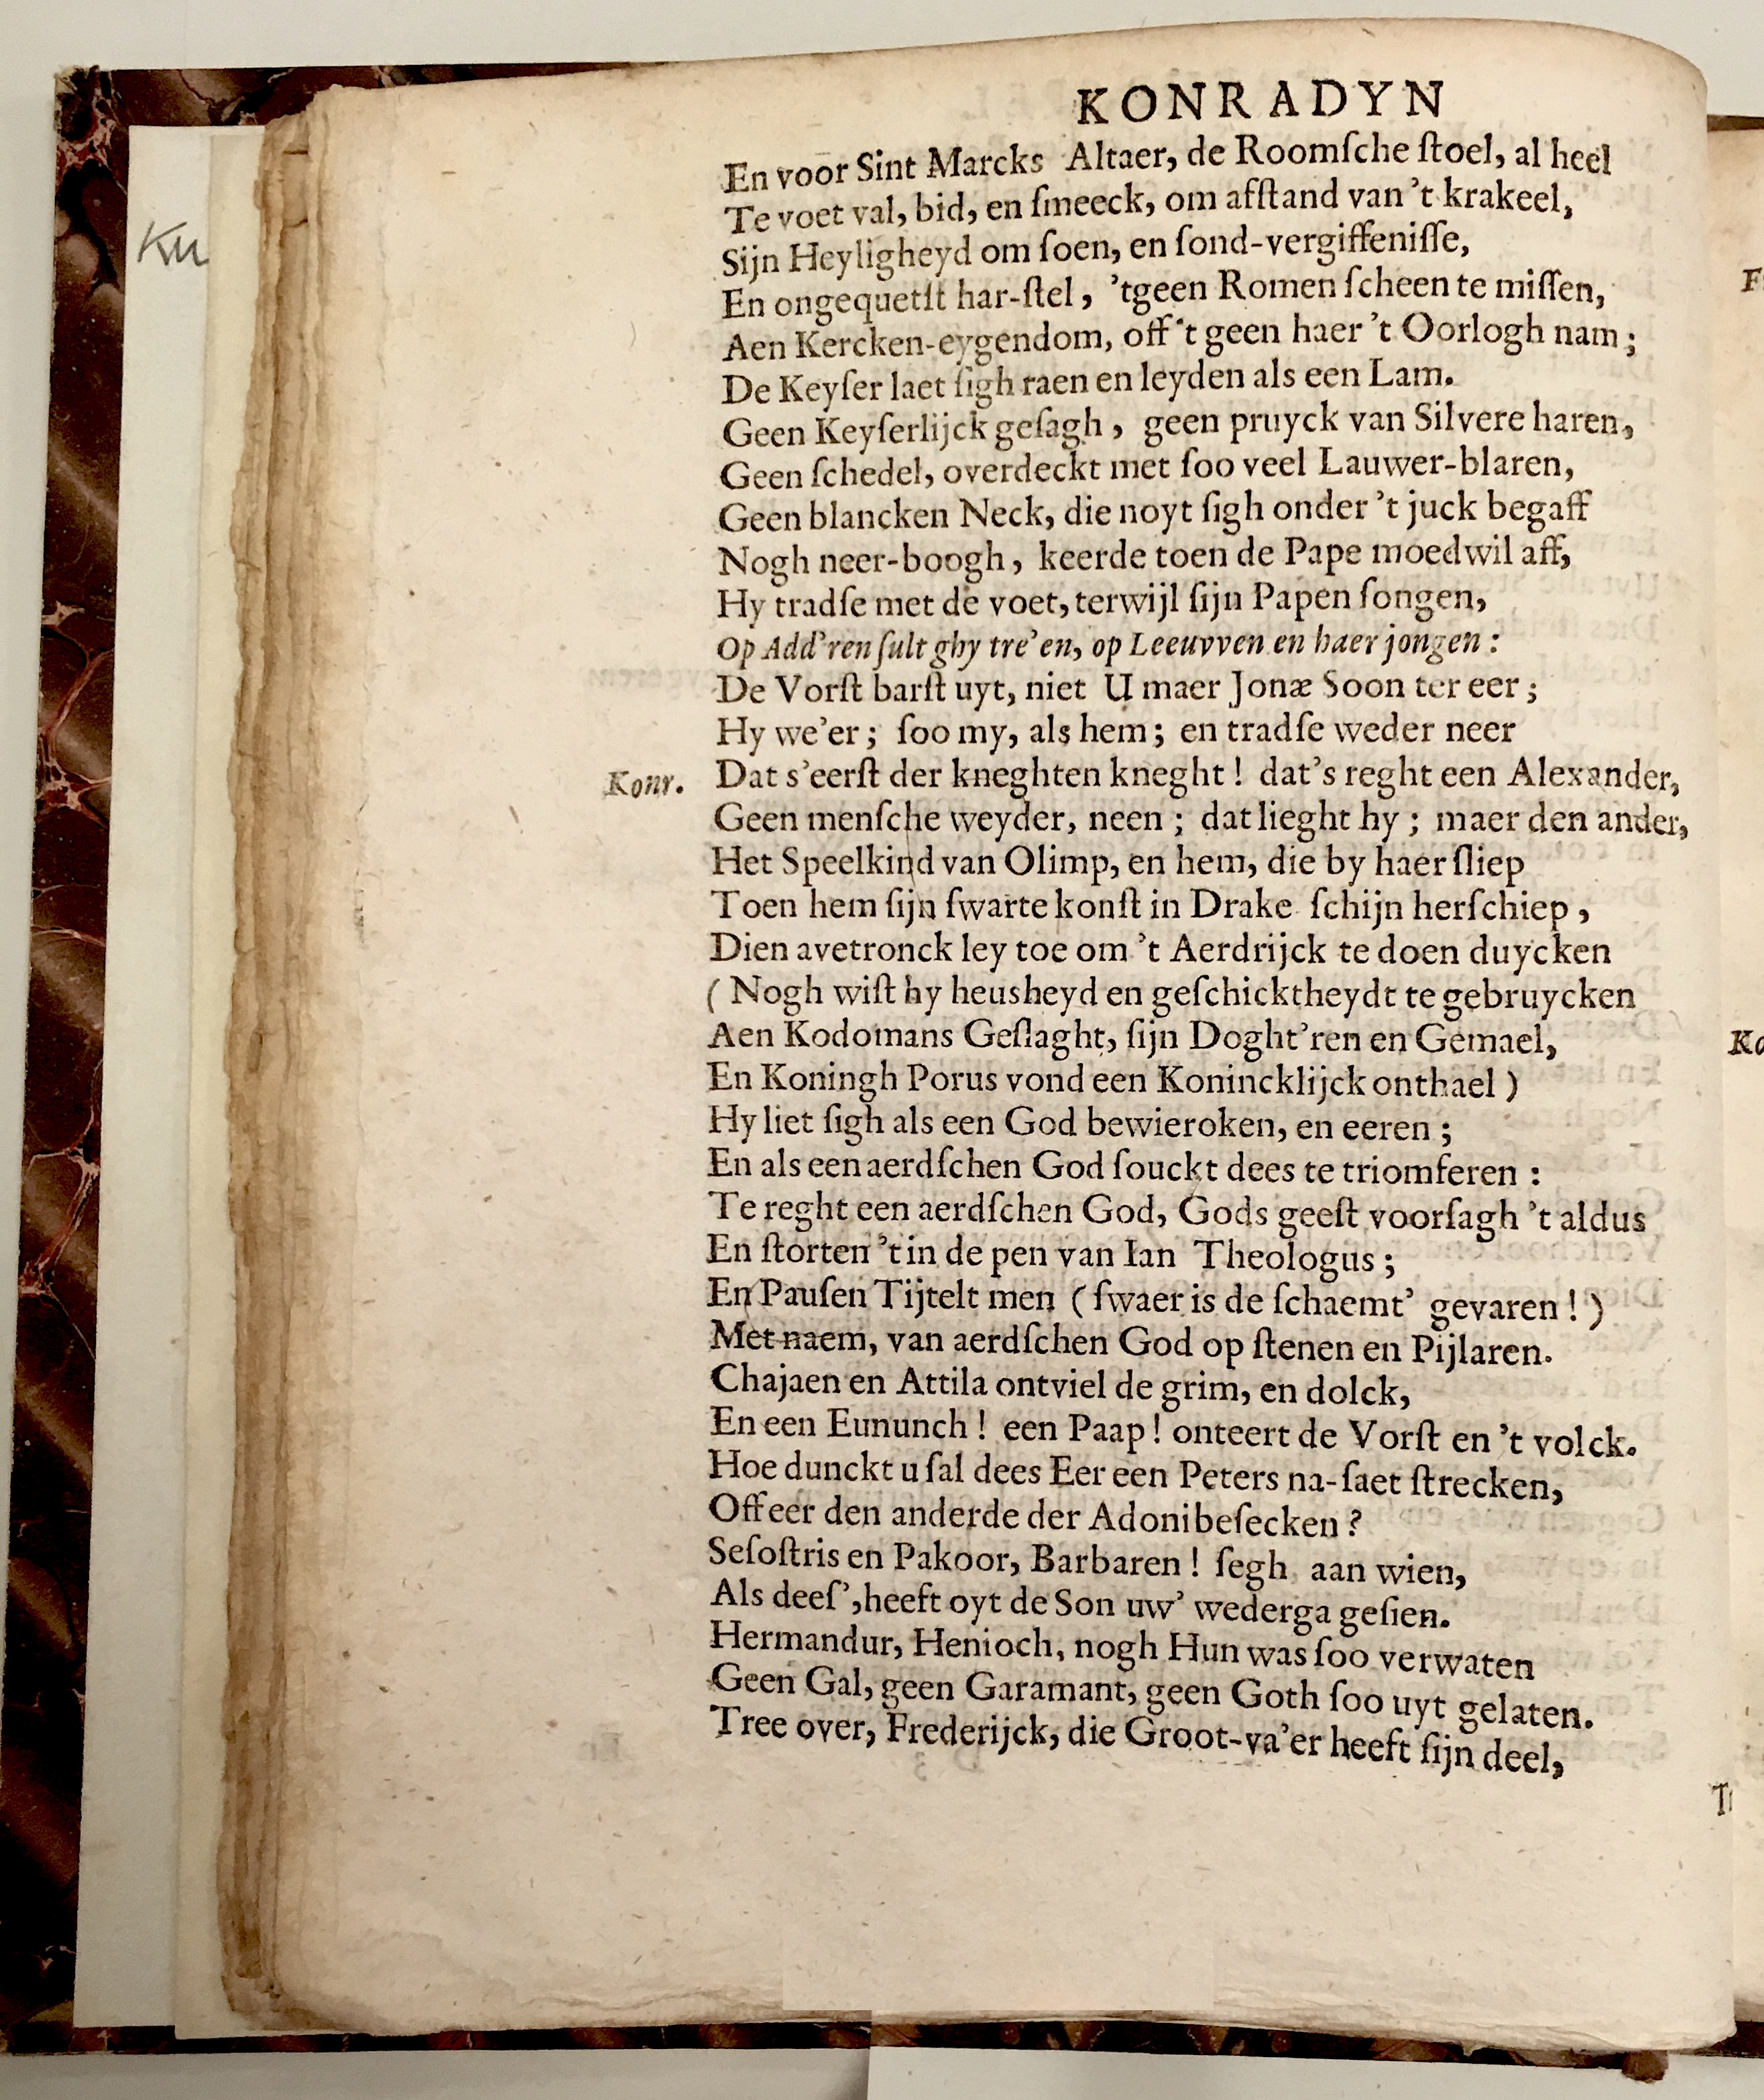 KONRADYN
En voor Sint Marcks Altaer, de Roomſche ſtoel, al heel
Te voet val, bid, en ſmeeck, om afſtand van 't krakeel,
Sijn Heyligheyd om ſoen, en ſond-vergiffeniſſe,
En ongequetſt har-ſtel, 'tgeen Romen ſcheen te miſſen,
Aen Kercken-eygendom, off 't geen haer 't Oorlogh nam;
De Keyſer laet ſigh raen en leyden als een Lam.
Geen Keyſerlijck geſagh, geen pruyck van Silvere haren,
Geen ſchedel, overdeckt met ſoo veel Lauwer-blaren,
Geen blancken Neck, die noyt ſigh onder 't juck begaff
Nogh neer-boogh, keerde toen de Pape moedwil aff,
Hy tradſe met de voet, terwijl ſijn Papen ſongen,
Op Add'ren ſult ghy tre'en, op Leeuvven en haer jongen:
De Vorſt barſt uyt, niet U maer Jonæ Soon ter eer;
Hy we'er; ſoo my, als hem; en tradſe weder neer
Konr. Dat s'eerſt der kneghten kneght! dat's reght een Alexander,
Geen menſche weyder, neen; dat lieght hy; maer den ander,
Het Speelkind van Olimp, en hem, die by haer ſliep
Toen hem ſijn ſwarte konſt in Drake ſchijn herſchiep,
Dien avetronck ley toe om 't Aerdrijck te doen duycken
(Nogh wiſt hy heusheyd en geſchicktheydt te gebruycken
Aen Kodomans Geſlaght, ſijn Doght'ren en Gemael,
En Koningh Porus vond een Konincklijck onthael)
Hy liet ſigh als een God bewieroken, en eeren;
En als een aerdſchen God ſouckt dees te triomferen:
Te reght een aerdſchen God, Gods geeſt voorſagh 't aldus
En ſtorten 't in de pen van Ian Theologus;
En Pauſen Tijtelt men (ſwaer is de ſchaemt' gevaren!)
Met naem, van aerdſchen God op ſtenen en Pijlaren.
Chajaen en Attila ontviel de grim, en dolck,
En een Eununch! een Paap! onteert de Vorſt en 't volck.
Hoe dunckt u ſal dees Eer een Peters na-ſaet ſtrecken,
Off eer den anderde der Adonibeſecken?
Seſoſtris en Pakoor, Barbaren! ſegh aan wien,
Als deeſ', heeft oyt de Son uw' wederga geſien.
Hermandur, Henioch, nogh Hun was ſoo verwaten
Geen Gal, geen Garamant, geen Goth ſoo uyt gelaten.
Tree over, Frederijck, die Groot-va'er heeft ſijn deel,